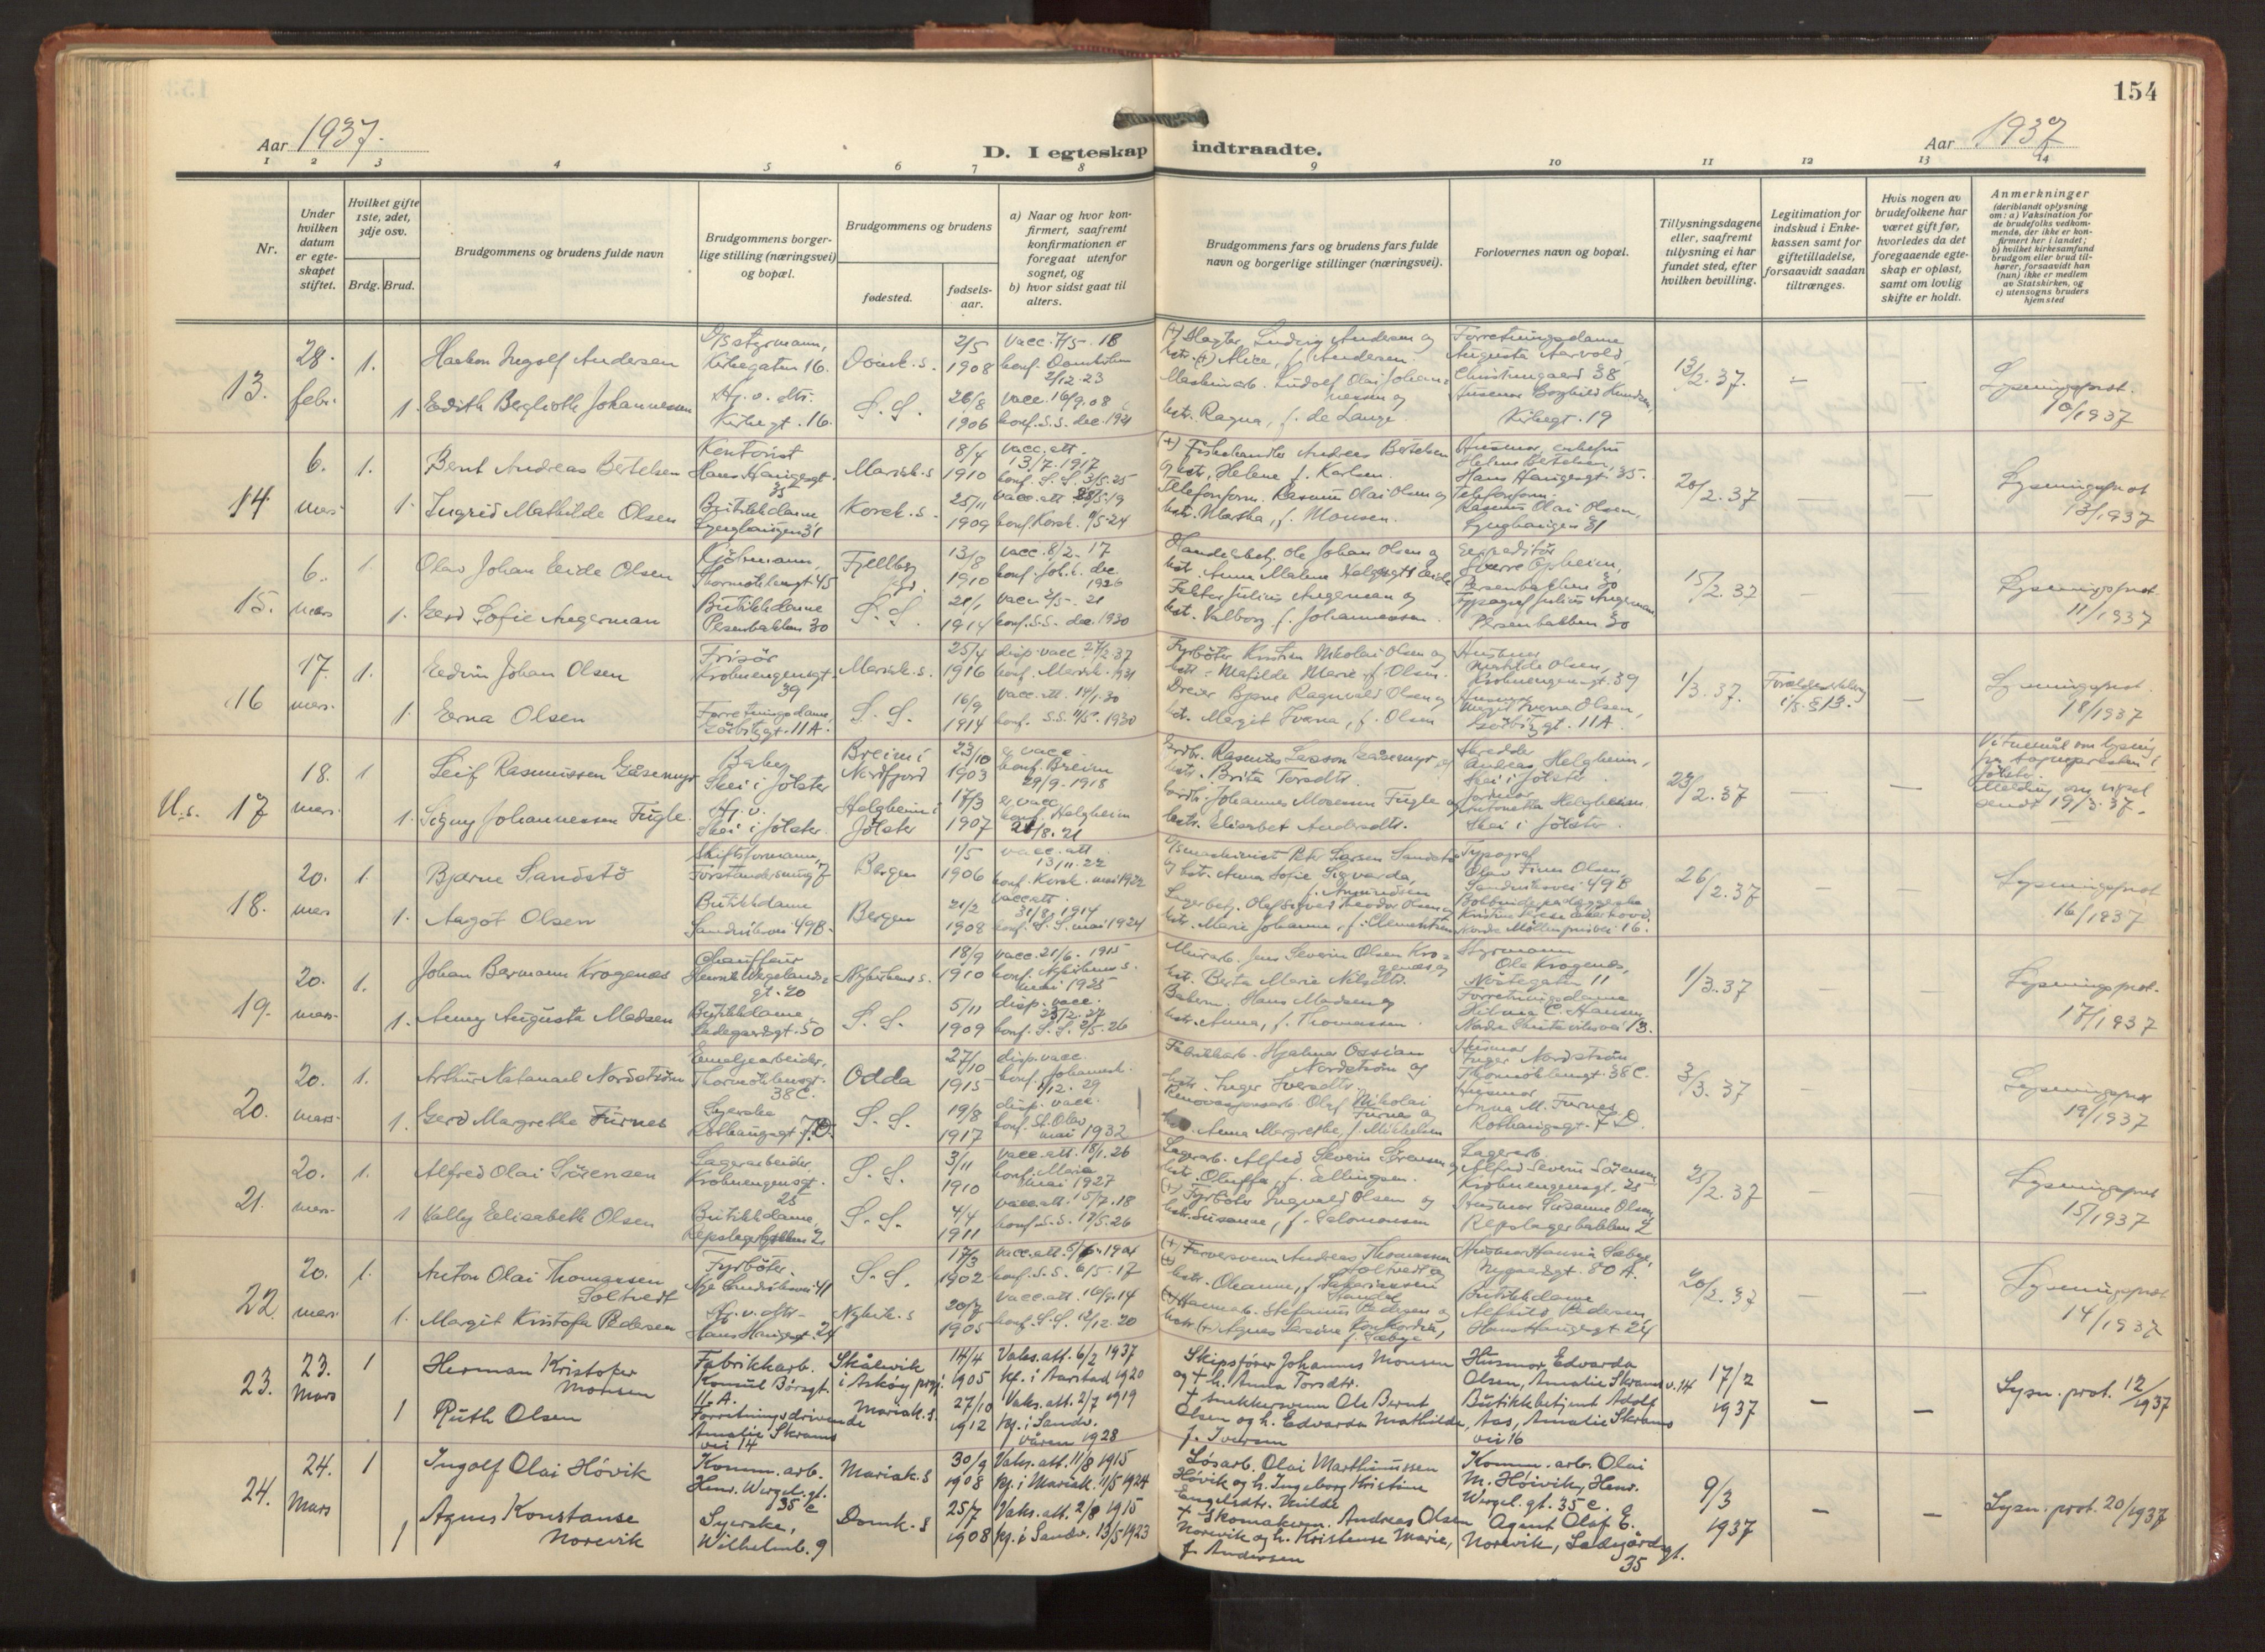 154
Aar 1937.
D. I egteskap indtraadte.
Aar 1937
1 2 3 4 5 6 7 8 9 10 11 12 13 14
Nr.
Under hvilken datum er egteskapet stiftet.
Hvilket gifte 1ste, 2det, 3dje osv.
Brdg. Brud.
Brudgommens og brudens fulde navn
Brudgommens borgerlige stilling (næringsvei) og bopæl.
Brudgommens og brudens
fødested.
fødsels-aar.
a) Naar og hvor konfirmert, saafremt konfirmationen er foregaat utenfor sognet, og
b) hvor sidst gaat til alters.
Brudgommens fars og brudens fars fulde navn og borgerlige stillinger (næringsvei).
Forlovernes navn og bopæl.
Tillysningsdagene eller, saafremt tillysning ei har fundet sted, efter hvilken bevilling.
Legitimation for indskud i Enkekassen samt for giftetilladelse, forsaavidt saadan tiltrænges.
Hvis nogen av brudefolkene har været gift før, hvorledes da det foregaaende egteskap er opløst, samt om lovlig skifte er holdt.
Anmerkninger
(deriblandt oplysning om: a) Vaksination for de brudefolks vedkommende, der ikke er konfirmert her i landet;
b) hvilket kirkesamfund brudgom eller brud tilhører, forsaavidt han (hun) ikke er medlem av Statskirken, og
c) utensogns bruders hjemsted
13.
28. febr.
1. Haakon Ingolf Andersen
D/S styrmann, Kirkegaten 16.
Domk. s.
2/5 1908
vacc. 7/5. 18
konf. Domkirken 2/12.23
(+) Slagter Ludvig Andersen og
hstr. (+) Alice, f. Andersen.
Forretningsdame
Augusta Aarvold,
Christinegaard 38
13/2. 37.
Lysningsprot. 10/1937
1. Edith Berglioth Johannessen
Hj. v. fltr. Kirkegt. 16.
S. S.
26/8 1906
vacc. 16/9.08
konf. S.S. dec. 1921
Maskinarb. Ludolf Olai Johannessen og
hstr. Ragna, f. de Lange
Kirkegt. 19
14
6. mars
1. Bernt Andreas Bertelsen
Kontorist
Hans Haugesgt. 35
Mariak. s
8/4 1910
vacc. att. 13/7. 1917
konf. S. S. 3/5. 25
(+) Fiskehandler Andreas Bertelsen
og hstr. Helene f. Karlsen.
Helene Bertelsen,
Hans Haugesgt. 35.
20/2. 37
Lysningsprot 13/1937
1. Ingrid Mathilde Olsen
Butikkdame
Lynghaugen 31
Korsk. s.
25/11 1909
konf. Korsk. 11/5.24
Telefonform. Rasmus Olai Olsen og
hstr. Martha, f. Monsen.
Telefonform. Rasmus Olai Olsen,
Lynghaugen 31
15.
6. mars
1. Olav Johan Eide Olsen
Kjöbmann,
Thormöhlensgt 45
Fjellberg
13/8 1910
vacc. 8/2. 17
konf. Joh. k. dec. 1926
Handelsbetj. Ole Johan Olsen og
Expeditör
Sverre Opheim,
Persenbakken 30
15/2. 37
Lysningsprot 11/1937
1. Gerd Sofie Angerman
Butikkdame
Persenbakken 30
S. S.
21/1 1914
vacc. 2/5. 21
konf. S.S. dec. 1930
Faktor Julius Angerman og
hstr. Valborg f. Johannessen.
Typograf Julius Angerman
Persenbakken 30
16
17. mars
1. Edvin Johan Olsen
Frisör
Krohnengensgt. 39
Mariak. s.
25/4 1916
disp. vacc. 27/2.37
konf. Mariak. 1931
Fyrböter Kristian Nikolai Olsen og
hstr. Mathilde Marie, f. Olsen.
Husmor
Mathilde Olsen,
Krohnengensgt. 39
1/3. 37.
Lysningsprot. 18/1937
1. Erna Olsen
Forretningsdame,
S. S.
16/9 1914
vacc. att. 14/1.30
konf. S.S. 11/5. 1930
Dreier Bjarne Ragnvald Olsen og
hstr. Margit Iverna, f. Olsen
Husmor
Margit Iverna Olsen,
U.s. 17
18. mars
1 Leif Rasmussen Gåsemyr
Baker
Skei i Jölster
Breim i Nordfjord
23/10 1903
e. vacc.
konf. Breim 29/9. 1918
Grdbr. Rasmus Larsson Gåsemyr og
hstr. Brita Torsdtr.
Skredder
Andreas Helgheim,
Skei i Jölster
27/2. 37
Melding om vigsel
sendt 19/3. 37.
1. Signy Johannessen Fugle.
Hj. v.
Skei i Jölster.
Helgheim i Jölster
17/3 1907
e. vacc.
konf. Helgheim 21/8. 21
Johannes Mosesson Fugle og
hstr. Elisabet Andersdtr.
Jordmor
Antonetta Helgheim
Skei i Jölster
18.
20. mars
1. Bjarne Sandstö
Skiftsformann,
Forstandersmug 7
Bergen
1/5 1906
vacc. att. 13/11. 22
konf. Korsk. mai 1922
D/S maskinist Peter Larsen Sandstö
og hstr. Anna Sofie Sigvarda, f. Amundsen
Typograf
Olav Finn Olsen,
Sandviksvei 49 B
26/2. 37
Lysningsprot 16/1937
1. Aagot Olsen
Butikkdame
Sandviksvei 49B.
Bergen
21/2 1908
vacc. att. 31/8. 1914
konf. S. S. mai 1924
Lagerbetj. Olaf Sigvard Theodor Olsen og
hstr. Marie Johanne, f. Clementsen
19.
20. mars
1. Johan Bermann Krogenæs
Chauffeur
Henrik Wergelandsgt. 20
Nykirkens s.
18/9 1910
vacc. 21/6. 1915
konf. Nykirkens s. mai 1925
Murarb. Jens Severin Olsen Krogenæs og
hstr. Berta Marie Nilsdtr.
Styrmann
Ole Krogenæs,
Nöstegaten 11
1/3.37
Lysningsprot. 17/1937
1. Anny Augusta Madsen
Butikkdame,
Ladegaardsgt. 50
S. S.
5/11 1909
disp. vacc. 23/2. 37
konf. S. S. 2/5. 26
Bakerm. Hans Madsen og
hstr. Anna, f. Thomassen.
Forretningsdame
Hilma C. Hansen
20.
20. mars.
1. Arthur Natanael Nordström
Emaljearbeider,
Thormöhlensgt. 38C.
Odda
27/10 1915
disp. vacc.
konf. Johannesk. 1/12. 29
Fabrikkarb. Hjalmar Ossian Nordström og
hstr. Inger Iversdtr.
Husmor
Inger Nordström,
Thormöhlensgt. 38C.
3/3. 37
Lysningsprot 19/1937
1. Gerd Margrethe Furnes
Syerske
Rothaugsgt. 7D.
S. S.
19/8 1917
disp. vacc.
konf. St. Olav mai 1932
Renovasjonsarb. Olaf Nikolai Furnes og
Anna Margrethe, f. Mikkelsen
Husmor
Anna M. Furnes,
Rothaugsgt. 7 D.
21.
20. mars
1. Alfred Olai Sörensen
Lagerarbeider,
Krohnengensgt. 25
S. S.
3/11 1910
vacc. att. 18/1. 26
konf. Maria mai 1927
Lagerarb. Alfred Severin Sörensen og
hstr. Oluffa, f. Ellingsen.
Lagerarb.
Alfred Severin Sörensen
Krohnengensgt. 25
25/2. 37
Lysningsprot 15/1937
1 Vally Elisabeth Olsen
Butikkdame,
Repslagerbakken 2
S. S.
4/4 1911
vacc. att. 15/7. 18
konf. S.S. 17/5. 26
(+) Fyrböter Ingvald Olsen og
hstr. Susanne, f. Salomonsen
Husmor Susanne Olsen,
Repslagerbakken 2
22.
20. mars
1. Anton Olai Thomassen Soltvedt
Fyrböter.
Nye Sandviksvei 41
S. S.
17/3 1902
konf. S.S. 6/5. 17
(+) Farversvenn Andreas Thomassen Soltvedt og
Husmor Hanna Sæbye,
Nygaardsgt. 80 A.
20/2. 37
Lysningsprot 14/1937
1. Margit Kristofa Pedersen
Hj. v. fltr.
Hans Haugesgt. 24
Nykirk. s
20/7 1905
konf. S.S. 12/12. 20
(+) Havnearb. Stefanus Pedersen og
f. Sæbye
Butikkdame
Alfhild Pedersen,
Hans Haugesgt. 24
23.
23. Mars
1 Herman Kristofer Monsen
Fabrikkarb.
Konsul Börsgt. 11.A.
Skålevik i Askøy prgj.
14/4 1905
Vaks. att. 6/2 1937
kf. i Aarstad 1920
Skipsfører Johannes Monsen
og + h. Anna Torsdtr.
Husmor Edvarda
Olsen, Amalie Skrams v. 14
17/2 1937
Lysn. prot. 12/1937
1 Ruth Olsen
Forretningsdrivende
Amalie Skrams vei 14
Mariak. s.
27/10 1912
Vaks. att. 2/7 1919
kf. i Sandv. våren 1928
+ Snekkersvenn Ole Bernt
Olsen og h. Edvarda Mathilde,
f. Iversen
Butikkbetjent Adolf
Aas, Amalie Skrams vei 16
24.
24. Mars
1 Ingolf Olai Høvik
Komm. arb.
Henr. Wergel. gt. 35 c
Mariak. s
30/9 1908
Vaks. att. 11/8 1915
kf. i Mariak. 11/5 1924
Løsarb. Olai Marthinussen
Høvik og h. Ingeborg Kristine
Engelsdtr. Milde
Komm. arb. Olai
M. Høivik, Henr.
Wergel. gt. 35 c.
9/3 1937
Lysn. prot. 20/1937
1 Agnes Konstanse Norevik
Syerske,
Wilhelmb. 9
Domk. s
25/7 1908
Vaks. att. 2/8 1915
kf. i Sandv. 13/5 1923
+ Skomakerm. Andreas Olsen
Norevik og h. Kristense Marie,
f. Andersen
Agent Olaf E.
Norevik, Ladegårdsgt. 35